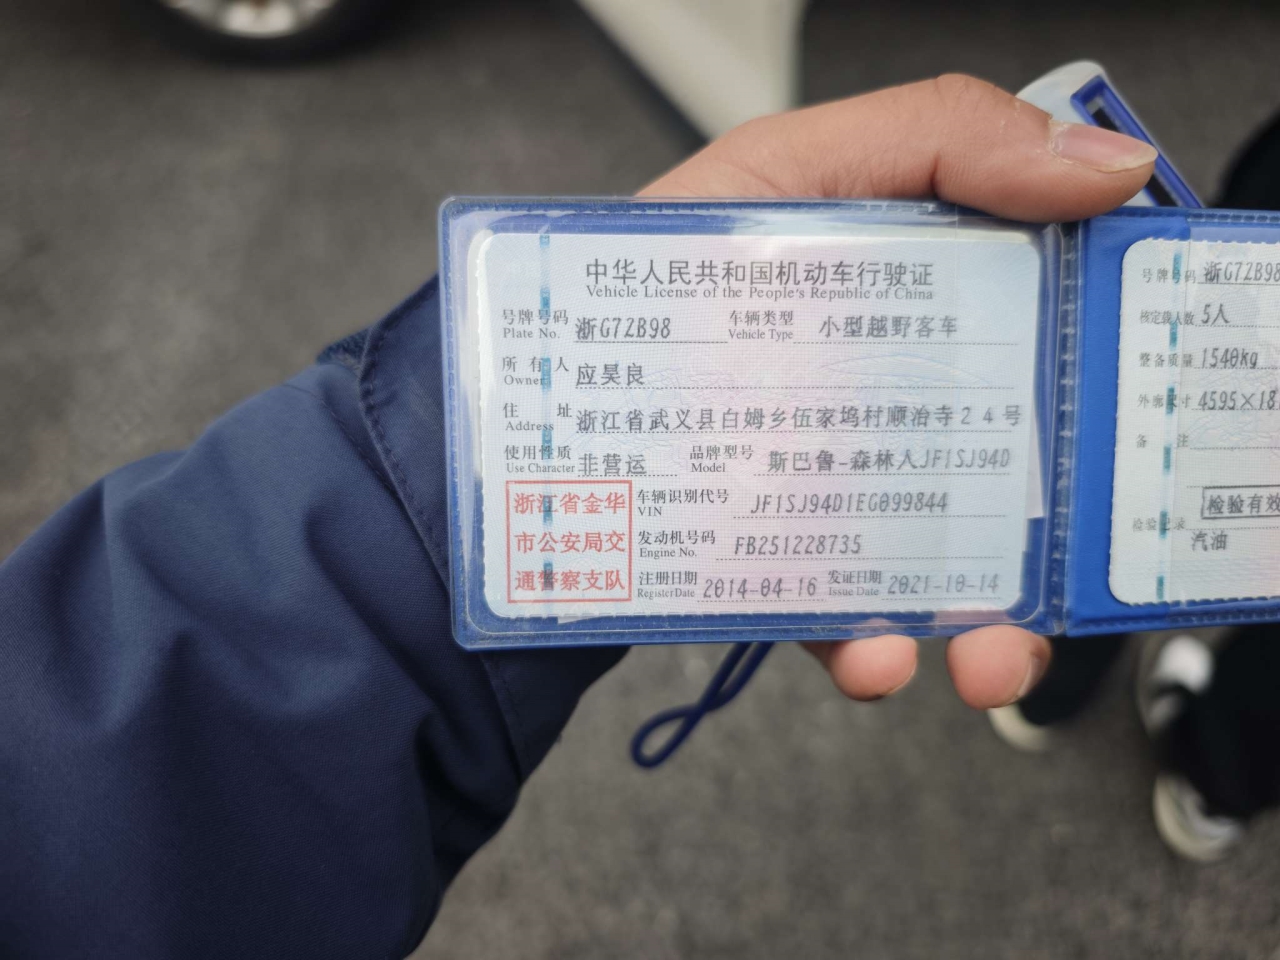 中华人民共和国机动车行驶证
Vehicle License of the People's Republic of China
号牌号码 浙G7ZB98 车辆类型 小型越野客车
Plate No. Vehicle Type
所有人 应昊良
Owner
住址 浙江省武义县白姆乡伍家坞村顺治寺24号
Address
使用性质 非营运 品牌型号 斯巴鲁-森林人JF1SJ94D
Use Character Model
浙江省金华
市公安局交
通警察支队
车辆识别代号 JF1SJ94D1EG099844
VIN
发动机号码 FB251228735
Engine No.
注册日期 2014-04-16 发证日期 2021-10-14
Register Date Issue Date
号牌号码 浙G7ZB98
核定载人数 5人
整备质量 1540kg
外廓尺寸 4595×18
备注
检验有效
检验记录
汽油